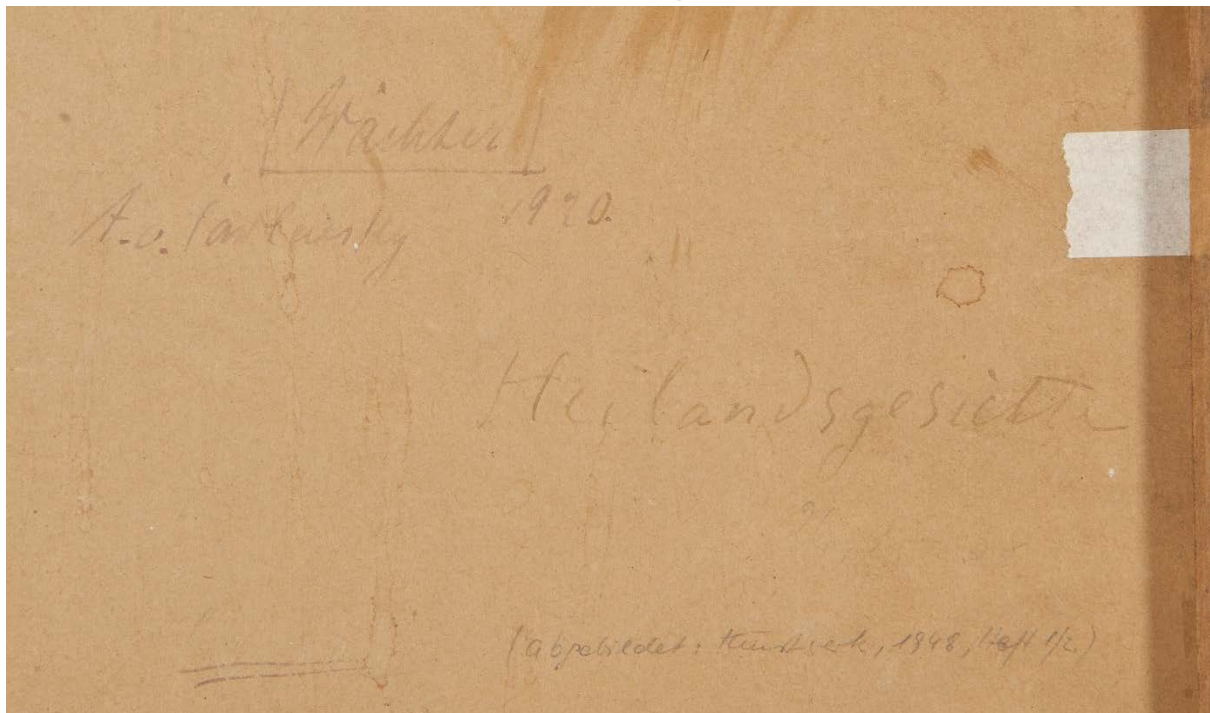 [Wächter]
A. v. Jawlensky 1920.
Heilandsgesichte
(abgebildet: Kunstwerk, 1948, Heft 1/2.)